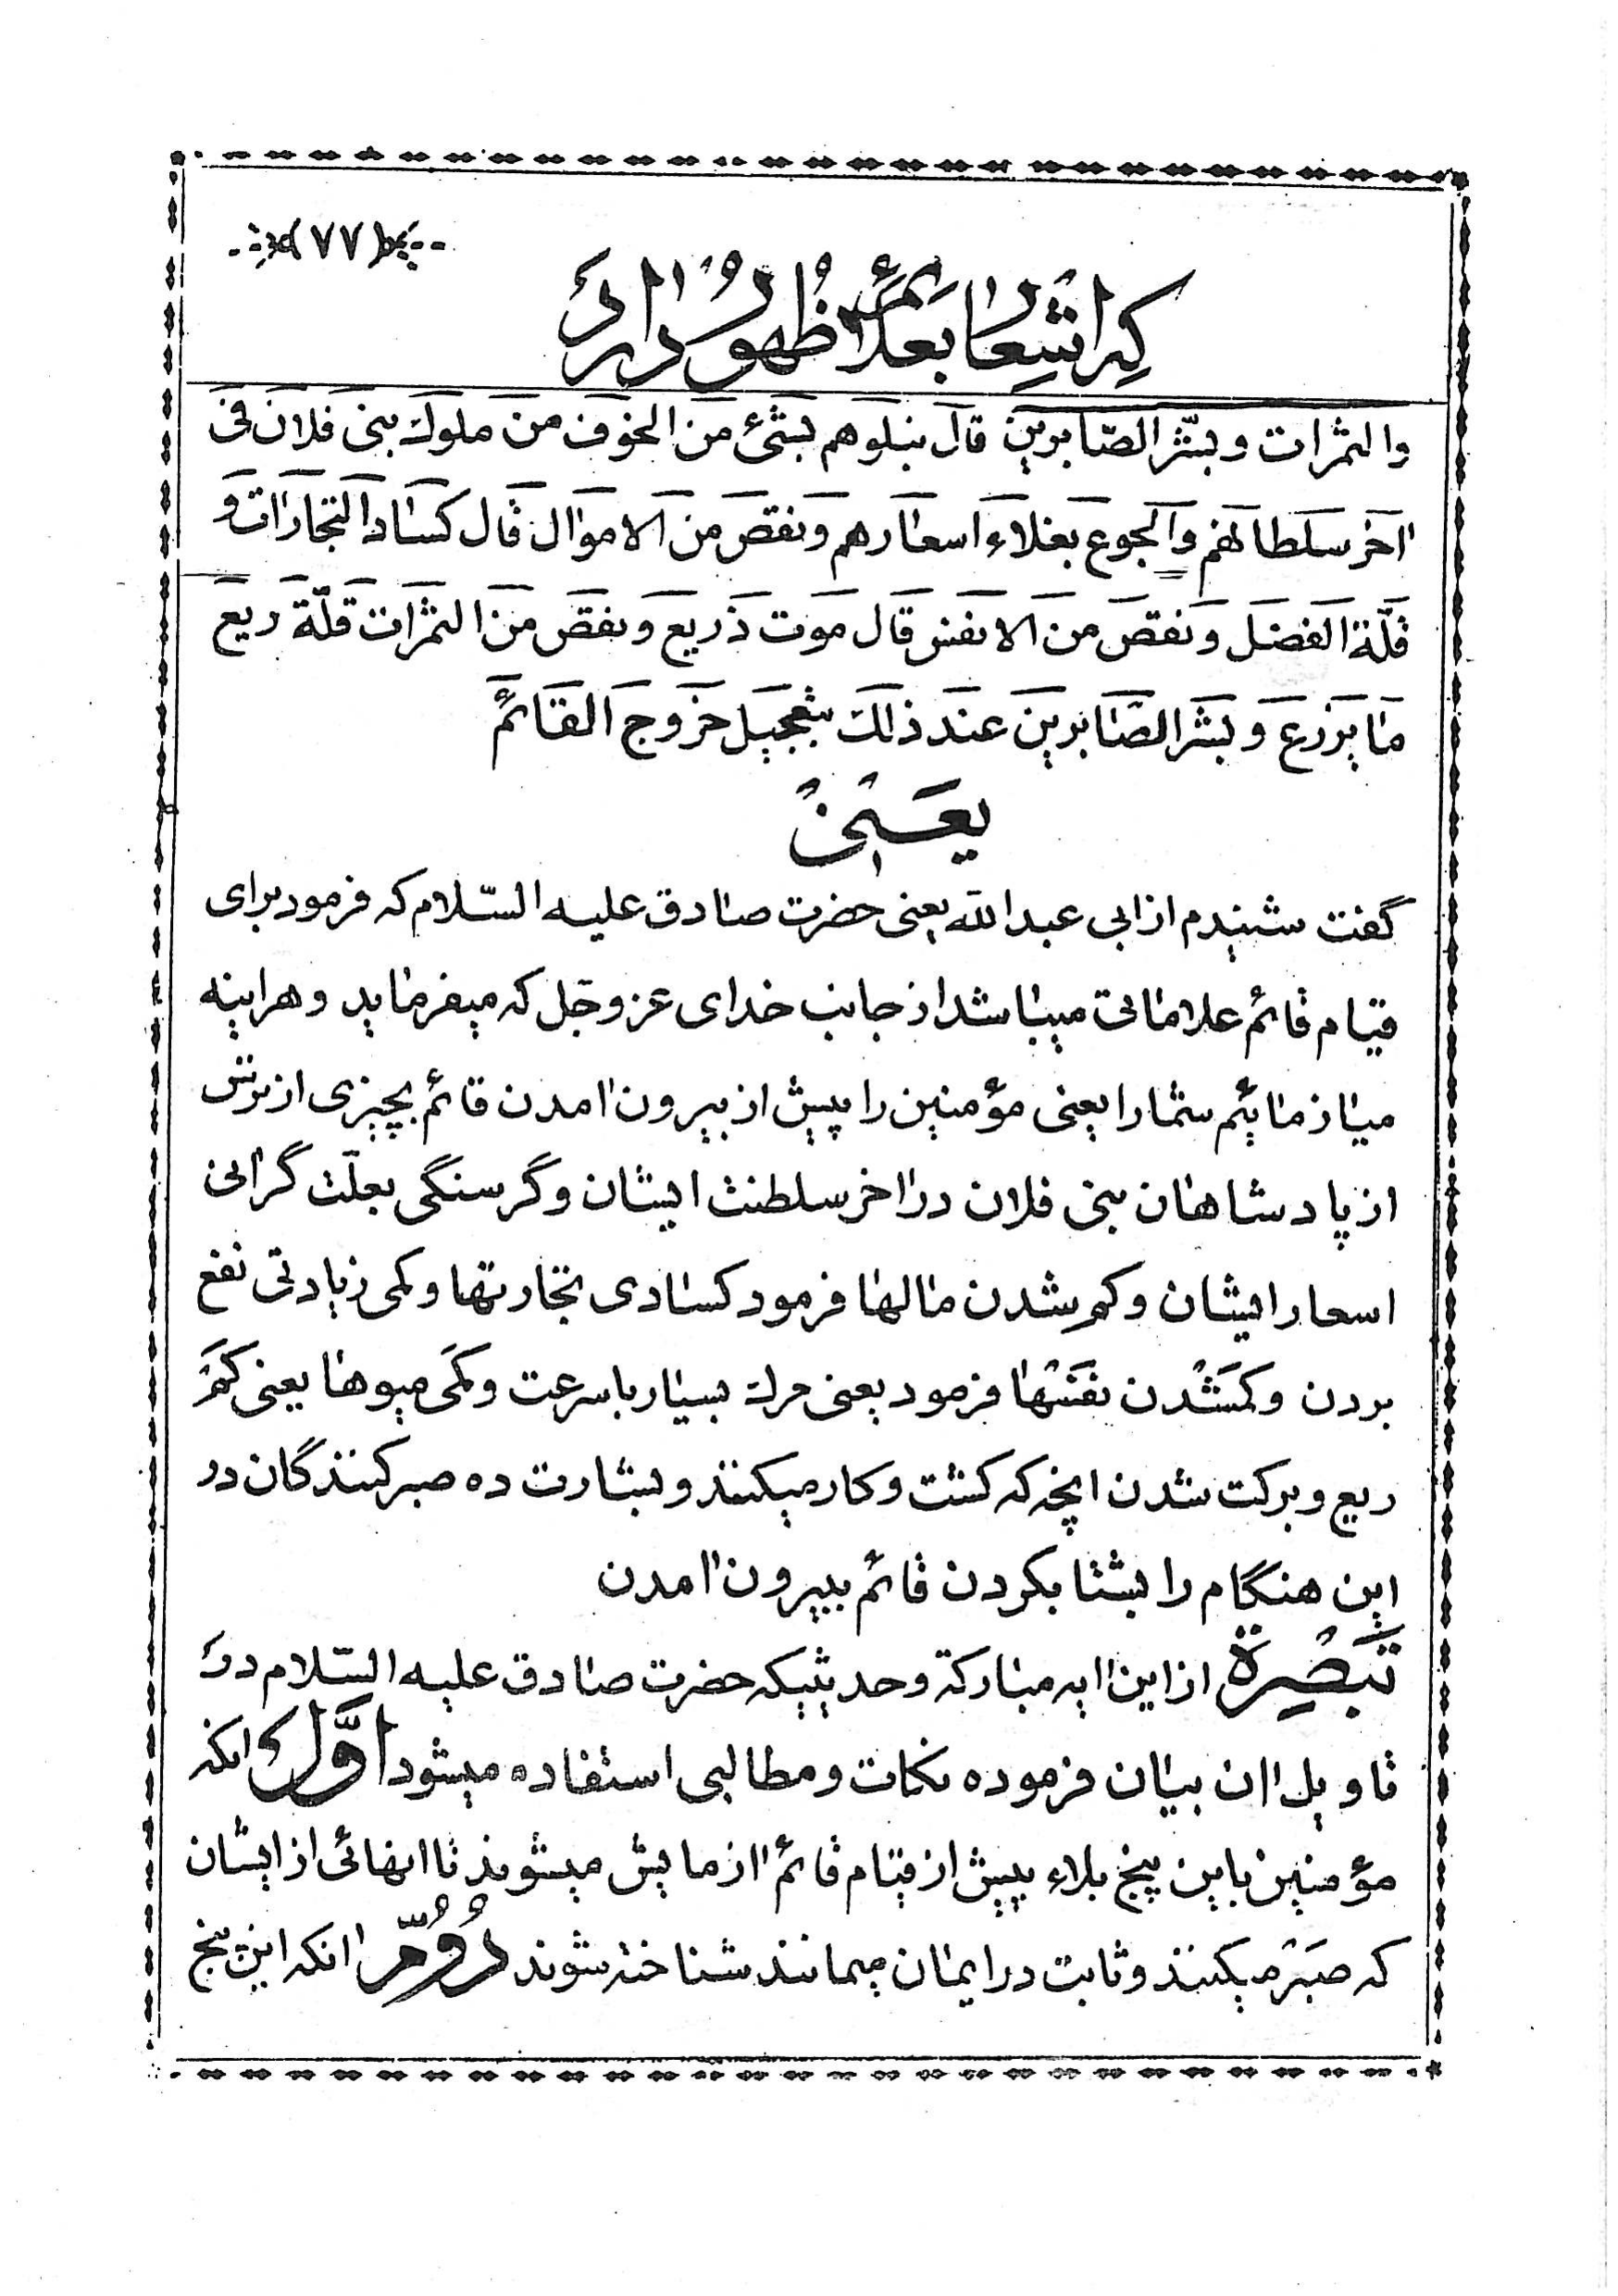 (۷۷)
که اشعار بعلائم ظهور دارد
والثمرات وبشّر الصّابرین قال نبلوهم بشئ من الخوف من ملوک بنی فلان فی
اخر سلطانهم والجوع بغلاء اسعارهم ونقص من الاموال قال کساد التجارات و
قلّة الفضل ونقص من الانفس قال موت ذریع ونقص من الثمرات قلّة ریع
ما یزرع وبشر الصّابرین عند ذلک بتعجیل خروج القائم
یعنی
گفت شنیدم از ابی عبدالله یعنی حضرت صادق علیه السّلام که فرمود برای
قیام قائم علاماتی میباشد از جانب خدای عزوجل که میفرماید وهراینه
میازمائیم شما را یعنی مؤمنین را پیش از بیرون امدن قائم بچیزی از ترس
از پادشاهان بنی فلان در اخر سلطنت ایشان وگرسنگی بعلّت گرانی
اسعار ایشان وکم شدن مالها فرمود کسادی تجارتها وکمی زیادتی نفع
بردن وکمشدن نفسها فرمود یعنی مرگ بسیار با سرعت وکمی میوها یعنی کم
ریع وبرکت شدن انچه که کشت وکار میکنند وبشارت ده صبرکنندگان در
این هنگام را بشتاب کردن قائم بیرون امدن
تبصرة از این ایه مبارکة وحدیثیکه حضرت صادق علیه السّلام در
تاویل ان بیان فرموده نکات ومطالبی استفاده میشود اوّل انکه
مؤمنین باین پنج بلاء پیش از قیام قائم ازمایش میشوند تا انهائی از ایشان
که صبر میکنند وثابت در ایمان میمانند شناخته شوند دوّم انکه این پنج